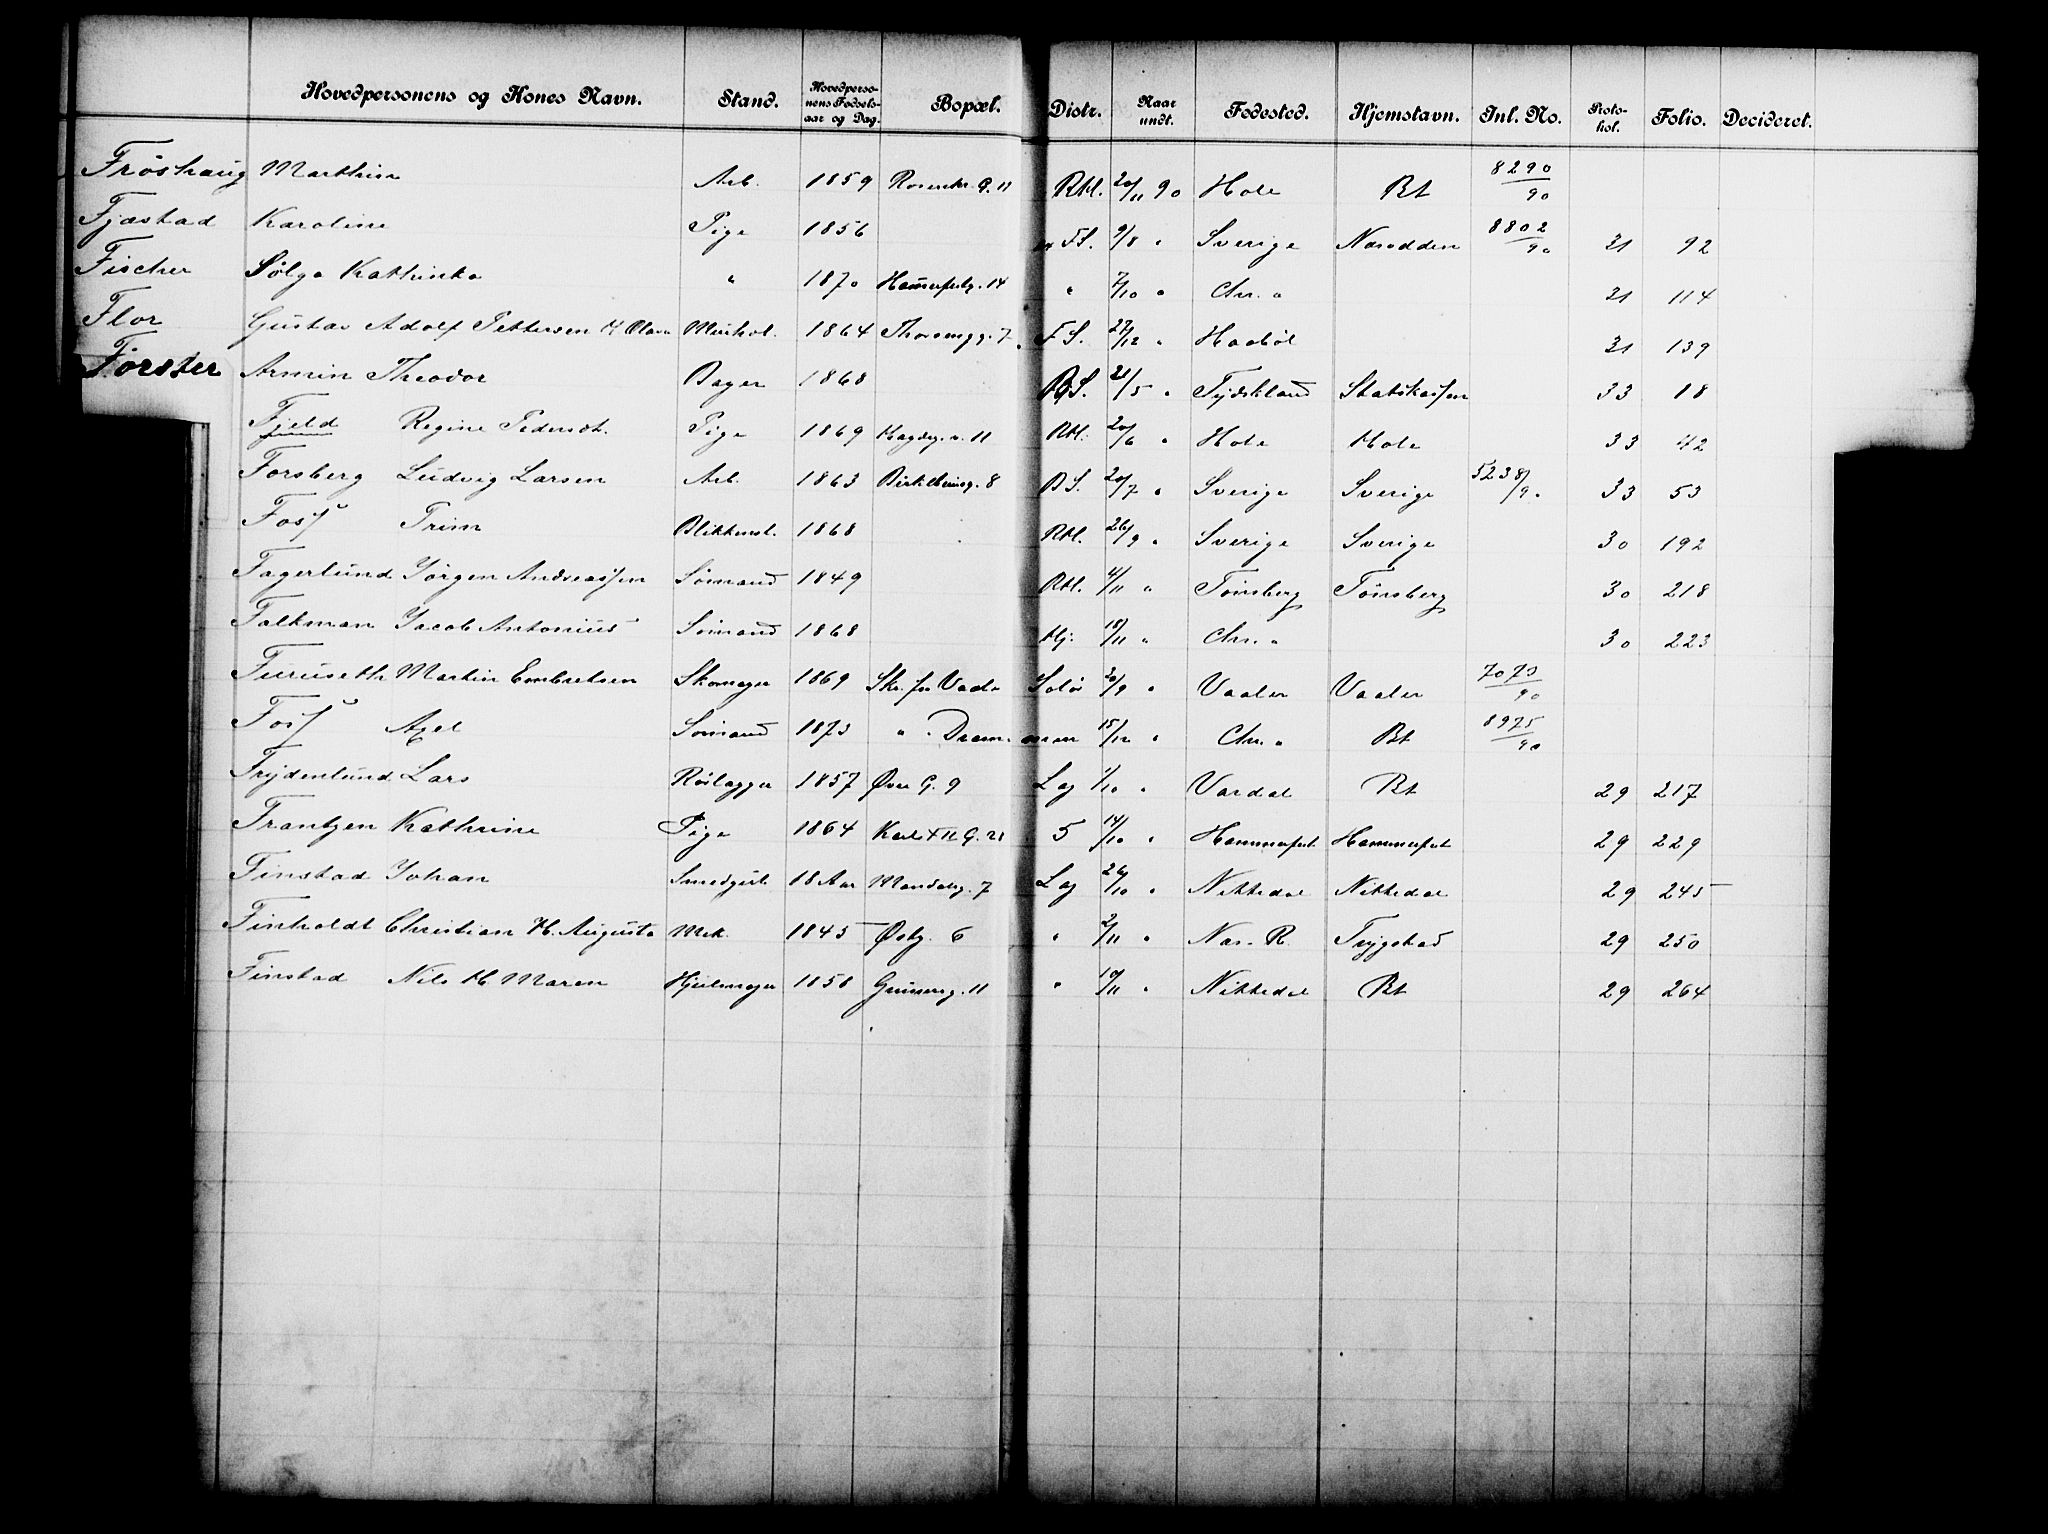 Hovedpersonens og Kones Navn. Stand. Hovedpersonens Fødselsaar og Dag. Bopæl. Distr. Naar undt. Fødested. Hjemstavn. Jnl. No. Protokol. Folio. Decideret.
Frøshaug Marthin Arb. 1859 Rosenkr. G. 11 Rkl. 20/11 90 Hole Bt 8290/90
Fjæstad Karoline Pige 1856 F.S. 9/8 " Sverige Næsodden 8802/90 31 92
Fischer Sølga Kathinka " 1870 Hammerfestg. 14 " 7/10 " Chr. a 31 114
Flor Gustav Adolf Pettersen H. Olava 1864 7 F.S. 27/12 " Haabøl 31 139
Førster Armin Theodor Bager 1868 B.S. 21/5 " Tydskland Statskassen 33 18
Fjeld Regine Pedersdt. Pige 1869 11 Rkl. 20/6 " Hole Hole 33 42
Forsberg Ludvig Larsen Arb. 1863 Birkelundsg. 8 B.S. 20/7 " Sverige Sverige 5238/90 33 53
Foss Trim Blikkensl. 1868 Rkl. 26/9 " Sverige Sverige 30 192
Fagerlund Jørgen Andreassen Sømand 1849 Rkl. 11/11 " Tønsberg Tønsberg 30 218
Falkman Jacob Antonius Sømand 1868 Hj. 18/11 " Chr. a 30 223
Furuseth Martin Embretsen Skomager 1869 Skr. fra Vaaler Solør 20/9 " Vaaler Vaaler 7073/90
Foss Axel Sømand 1873 " " Drammen 15/12 " Chr. a Bt 8975/90
Frydenlund Lars Rørlægger 1857 Øvre G. 9 Lag 1/10 " Vardal Bt 29 217
Frantzen Kathrine Pige 1864 Karl XII G. 21 5 14/10 " Hammerfest Hammerfest 29 229
Finstad Johan Smedgut 18 Aar Mandalsg. 7 Lag 26/10 " Nittedal Nittedal 29 245
Finholdt Christian H. Augusta Mek. 1845 Østg. 6 " 2/11 " Næs. R. Trygstad 29 250
Finstad Nils H. Maren Hjulmager 1858 Grünersg. 11 " 10/11 " Nittedal Bt 29 264